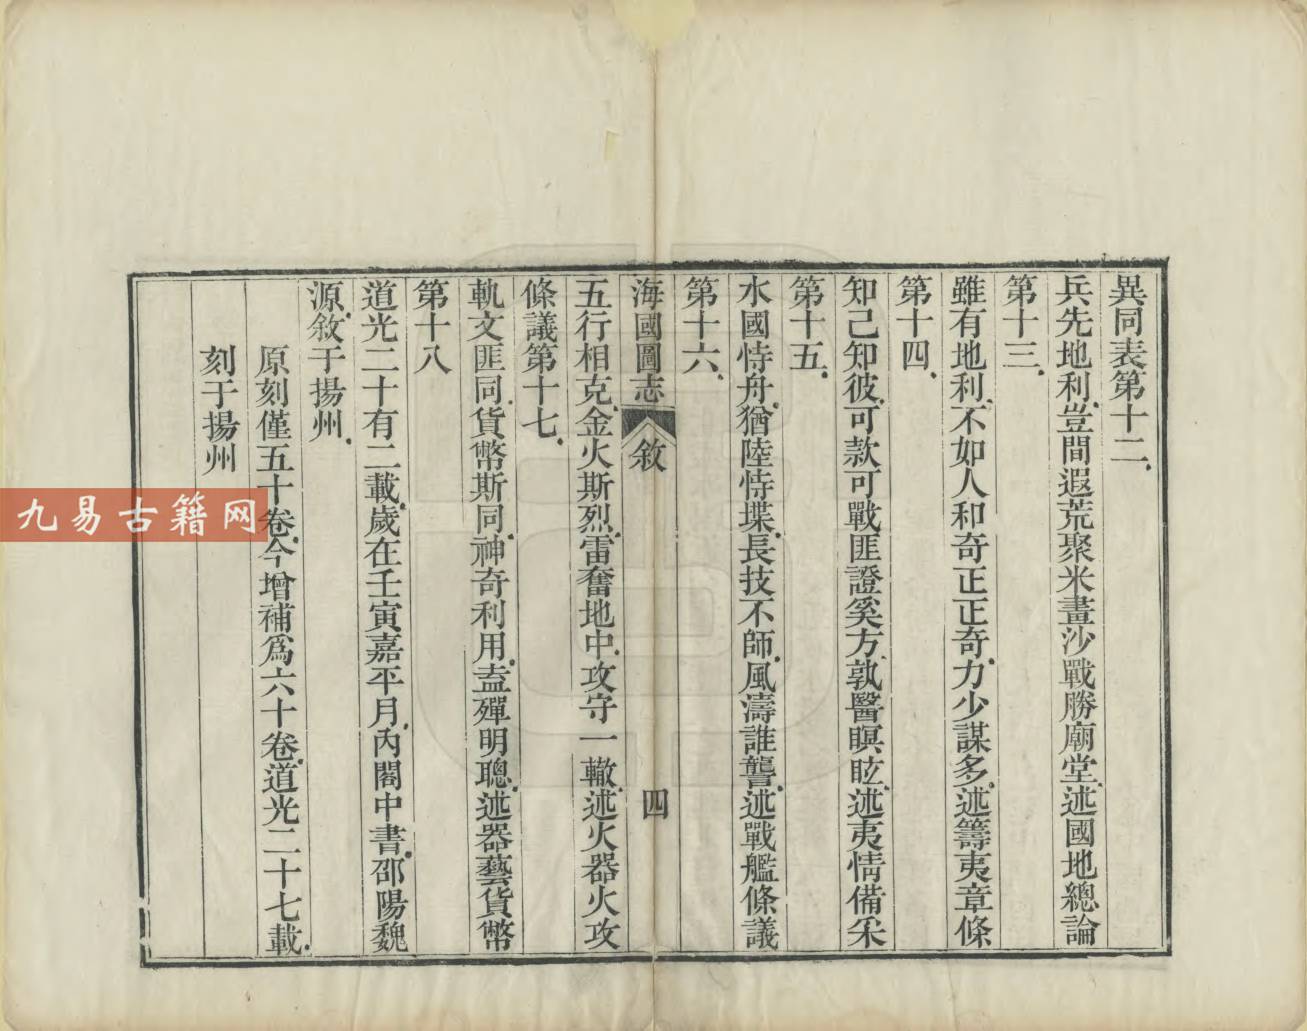 異同表第十二
兵先地利豈間遐荒聚米畫沙戰勝廟堂述國地總論
第十三
雖有地利不如人和奇正正奇力少謀多述籌夷章條
第十四
知己知彼可款可戰匪證奚方孰醫瞑眩述夷情備采
第十五
水國恃舟猶陸恃堞長技不師風濤誰讋述戰艦條議
第十六
海國圖志 敘 四
五行相克金火斯烈雷奮地中攻守一轍述火器火攻
條議第十七
軌文匪同貨幣斯同神奇利用盍殫明聰述器藝貨幣
第十八
道光二十有二載歲在壬寅嘉平月內閣中書邵陽魏
源敘于揚州
原刻僅五十卷今增補爲六十卷道光二十七載
刻于揚州
九易古籍网